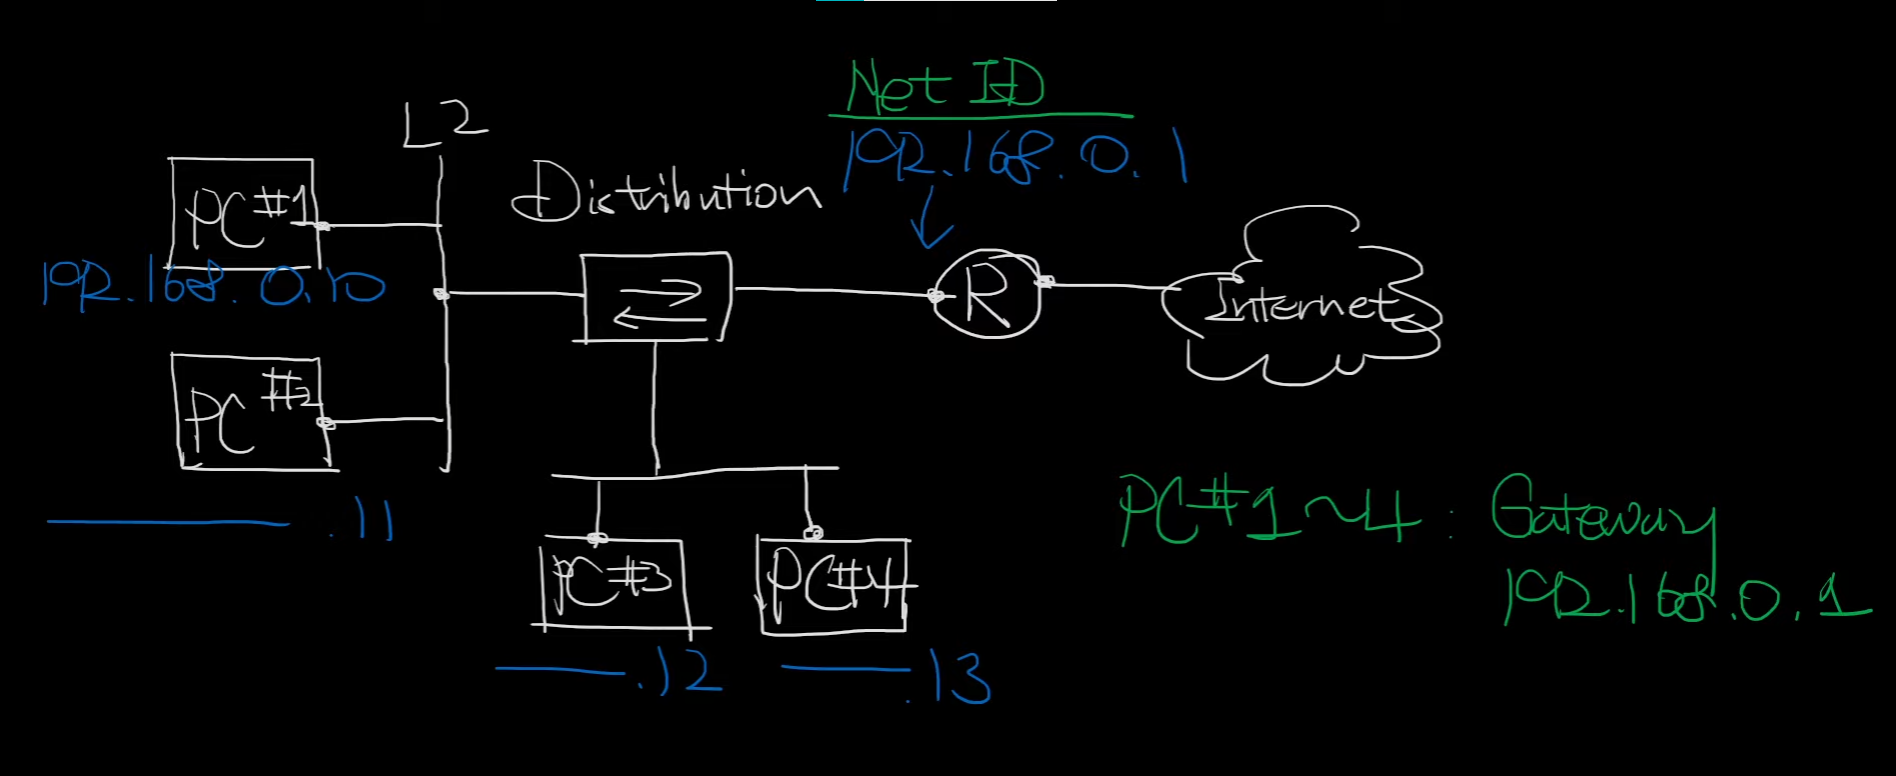 Net ID
192.168.0.1
L2
Distribution
PC#1
192.168.0.10
R
Internet
PC#2
.11
PC#3
PC#4
.12
.13
PC#1~4 : Gateway
192.168.0.1